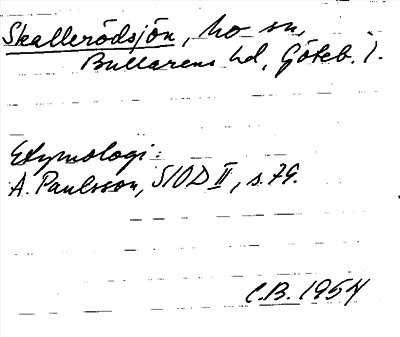 Skallerödsjön, ho sn,
Bullarens hd, Göteb. l.
Etymologi:
A. Paulsson, SIOD II, s. 79.
C.B. 1954